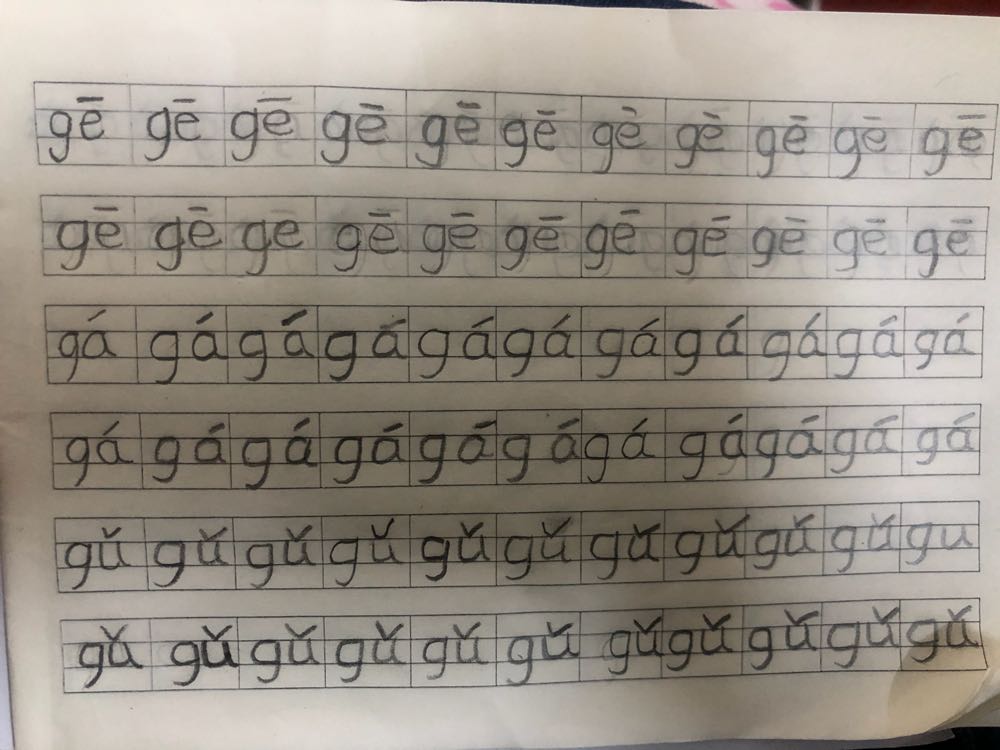 gē gē gē gē gē gē gè gè gē gē gē
gē gē ge gē gē gē gē gē gē gē gē
gá gá gá gá gá gá gá gá gá gá gá
gá gá gá gá gá gá gá gá gá gá gá
gǔ gǔ gǔ gǔ gǔ gǔ gǔ gǔ gǔ gǔ gu
gǔ gǔ gǔ gǔ gǔ gǔ gǔ gǔ gǔ gǔ gǔ